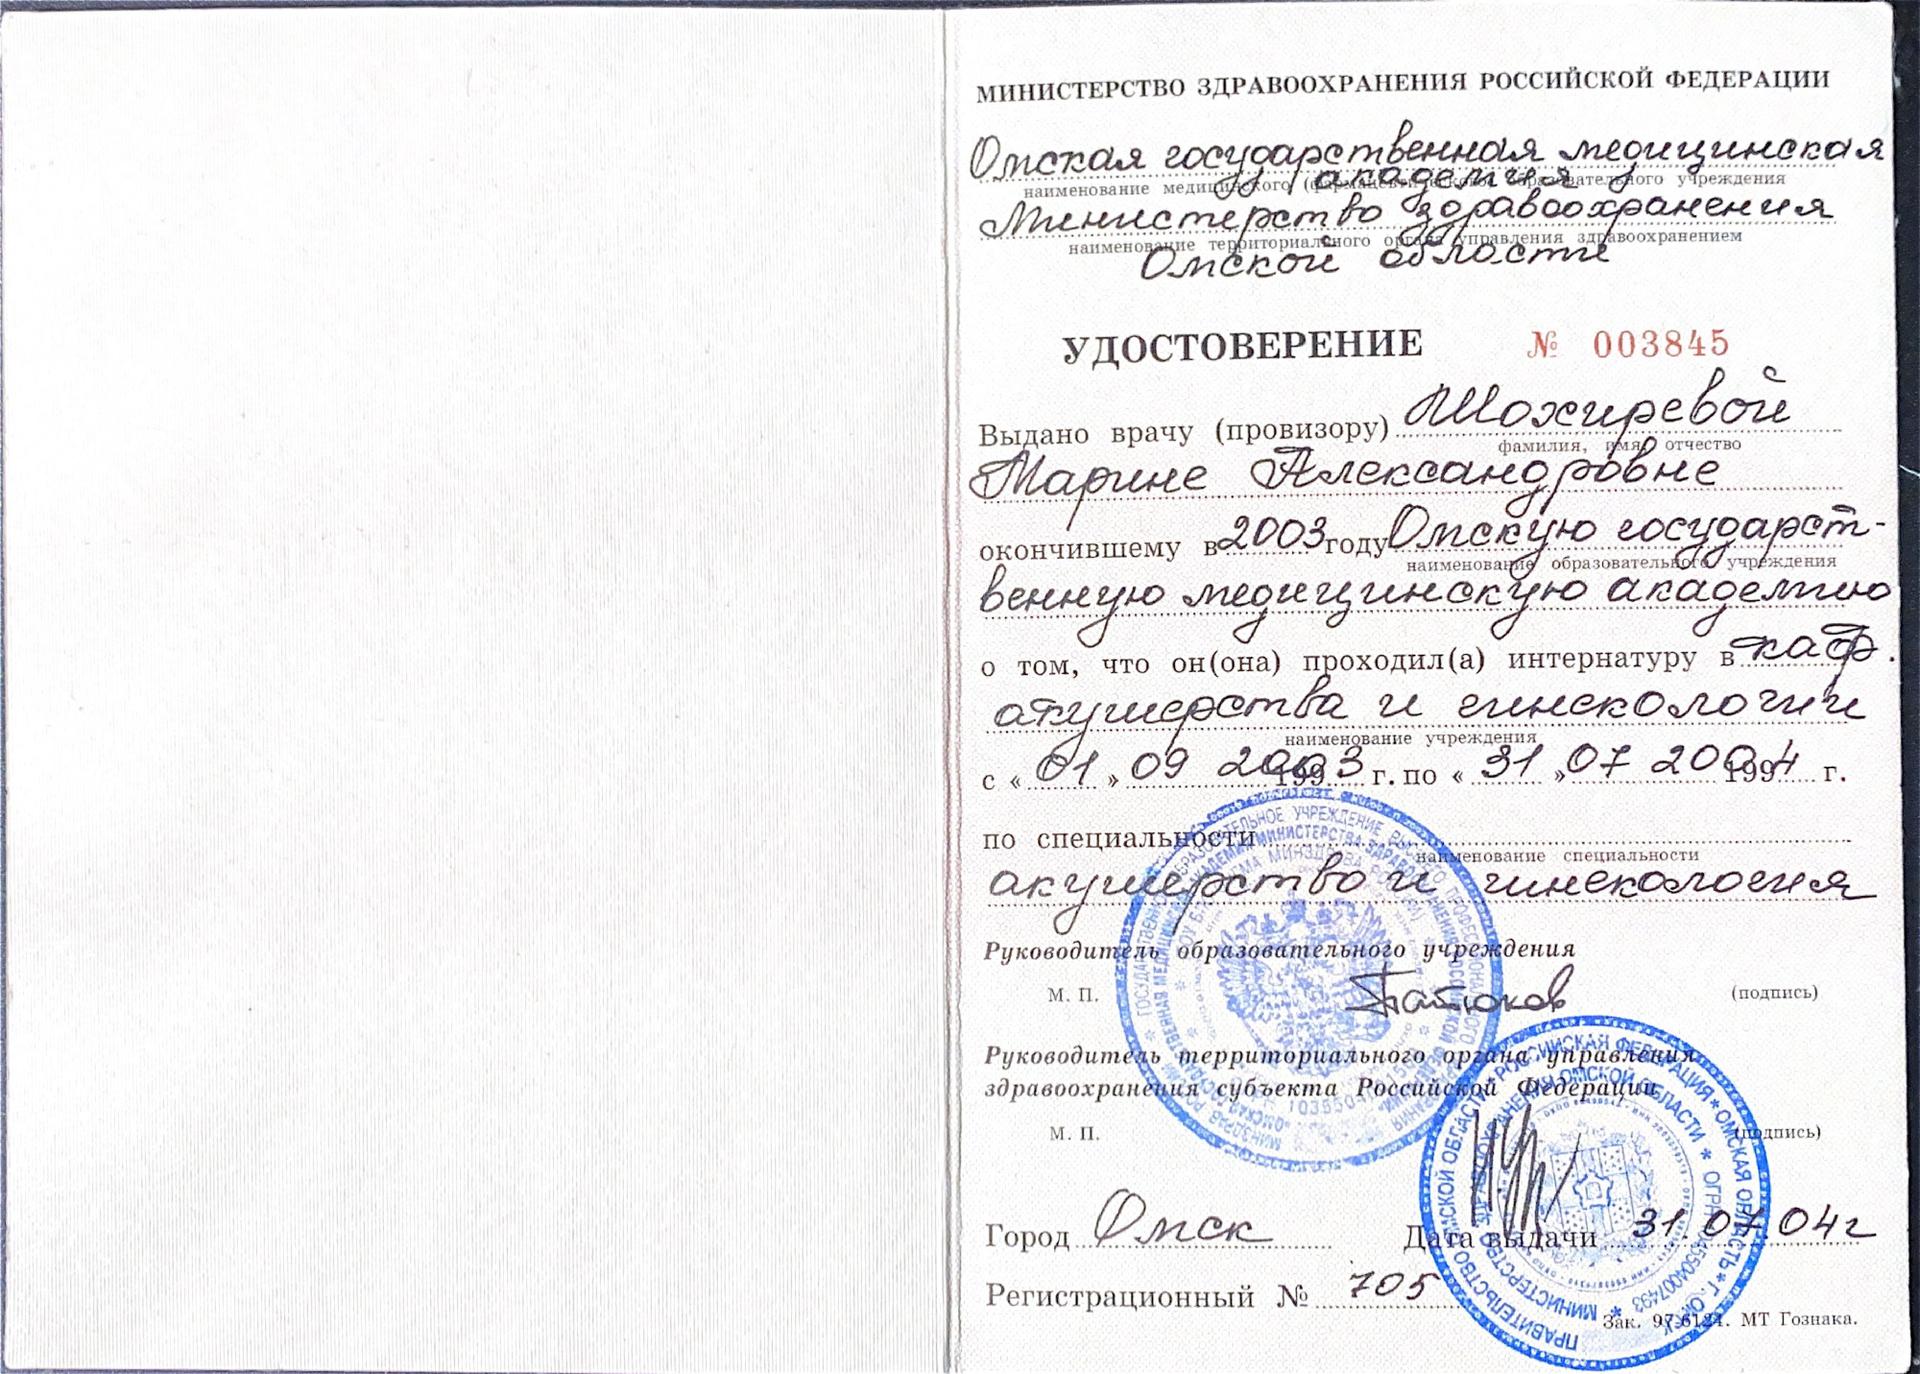 МИНИСТЕРСТВО ЗДРАВООХРАНЕНИЯ РОССИЙСКОЙ ФЕДЕРАЦИИ
Омская государственная медицинская
академия
наименование медицинского (фармацевтического) образовательного учреждения
Министерство здравоохранения
наименование территориального органа управления здравоохранением
Омской области
УДОСТОВЕРЕНИЕ № 003845
Выдано врачу (провизору) Шохиревой
фамилия, имя, отчество
Марине Александровне
окончившему в 2003 году Омскую государст-
наименование образовательного учреждения
венную медицинскую академию
о том, что он(она) проходил(а) интернатуру в каф.
акушерства и гинекологии
наименование учреждения
с « 01 » 09 2003 г. по « 31 » 07 2004 г.
по специальности
наименование специальности
акушерство и гинекология
Руководитель образовательного учреждения
М. П. (подпись)
Руководитель территориального органа управления
здравоохранения субъекта Российской Федерации
М. П. (подпись)
Город Омск Дата выдачи 31 07 04г
Регистрационный № 705
Зак. 97-6124. МТ Гознака.
ПРАВИТЕЛЬСТВО ОМСКОЙ ОБЛАСТИ * РОССИЙСКАЯ ФЕДЕРАЦИЯ * ОМСКАЯ ОБЛАСТЬ * Г. ОМСК
МИНИСТЕРСТВО ЗДРАВООХРАНЕНИЯ ОМСКОЙ ОБЛАСТИ *